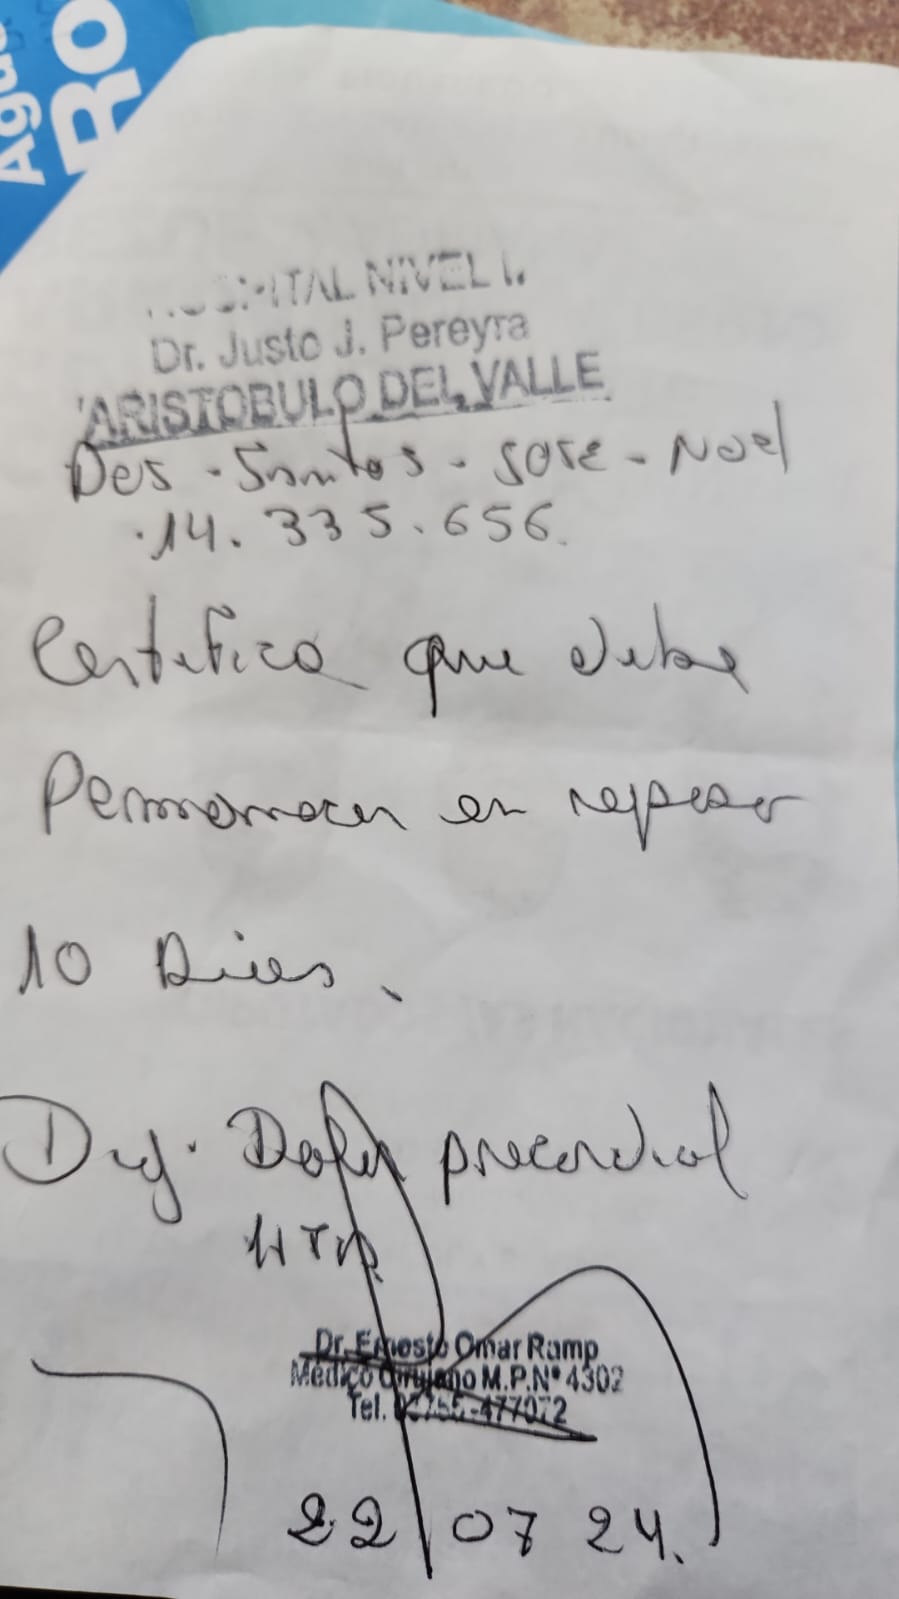 Agua
RO
HOSPITAL NIVEL I.
Dr. Justo J. Pereyra
ARISTOBULO DEL VALLE
Dos - Santos - JOSE - Noel
14.335.656.
Certifico que debe
Permanecer en reposo
10 Dias.
Dig. Dolor precordial
HTA.
Dr. Ernesto Omar Ramp
Médico Cirujano M.P.Nº 4302
Tel. 03755-477072
22 07 24.